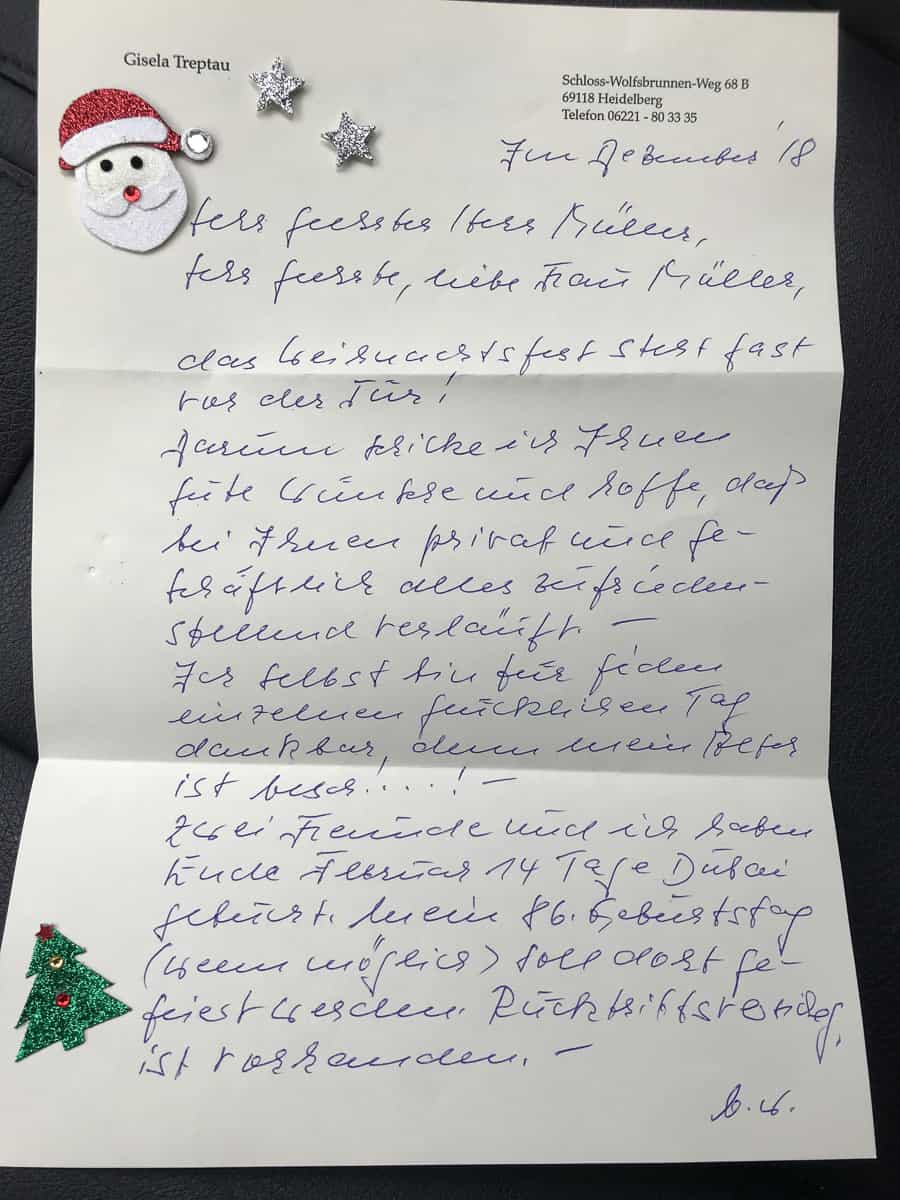 Gisela Treptau
Schloss-Wolfsbrunnen-Weg 68 B
69118 Heidelberg
Telefon 06221 - 80 33 35
Im Dezember '18
Sehr geehrter Herr Müller,
sehr geehrte, liebe Frau Müller,
das Weihnachtsfest steht fast
vor der Tür!
Darum schicke ich Ihnen
gute Wünsche und hoffe, daß
bei Ihnen privat und ge-
schäftlich alles zufrieden-
stellend verläuft. —
Ich selbst bin für jeden
einzelnen glücklichen Tag
dankbar, denn mein Alter
ist hoch!....! —
Zwei Freunde und ich haben
Ende Februar 14 Tage Dubai
gebucht. Mein 86. Geburtstag
(wenn möglich) soll dort ge-
feiert werden. Rücktrittsversichg.
ist vorhanden. —
b. w.